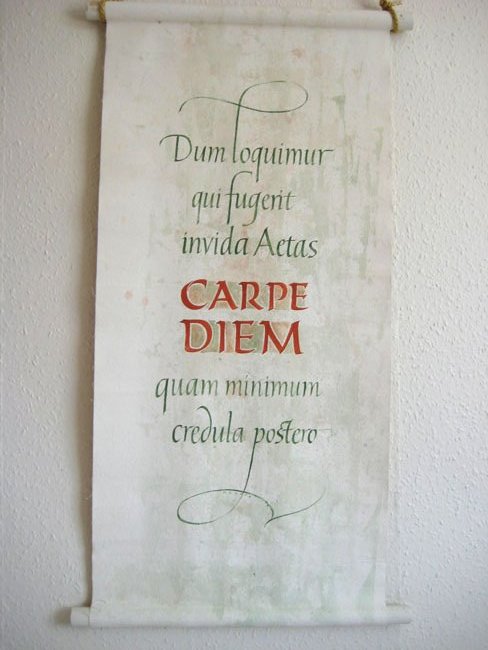 Dum loquimur
qui fugerit
invida Aetas
CARPE
DIEM
quam minimum
credula postero